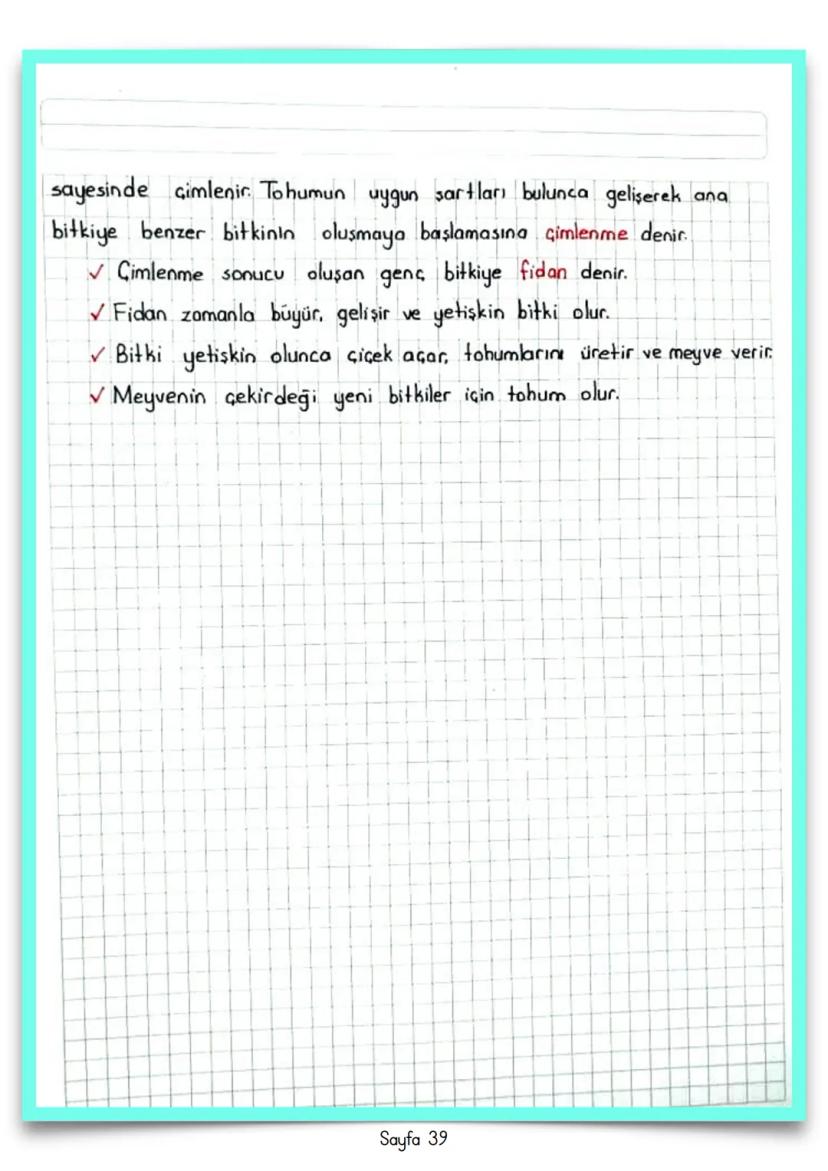 sayesinde çimlenir. Tohumun uygun şartları bulunca gelişerek ana
bitkiye benzer bitkinin oluşmaya başlamasına çimlenme denir.
✓ Çimlenme sonucu oluşan genç bitkiye fidan denir.
✓ Fidan zamanla büyür, gelişir ve yetişkin bitki olur.
✓ Bitki yetişkin olunca çiçek açar, tohumlarını üretir ve meyve verir.
✓ Meyvenin çekirdeği yeni bitkiler için tohum olur.
Sayfa 39